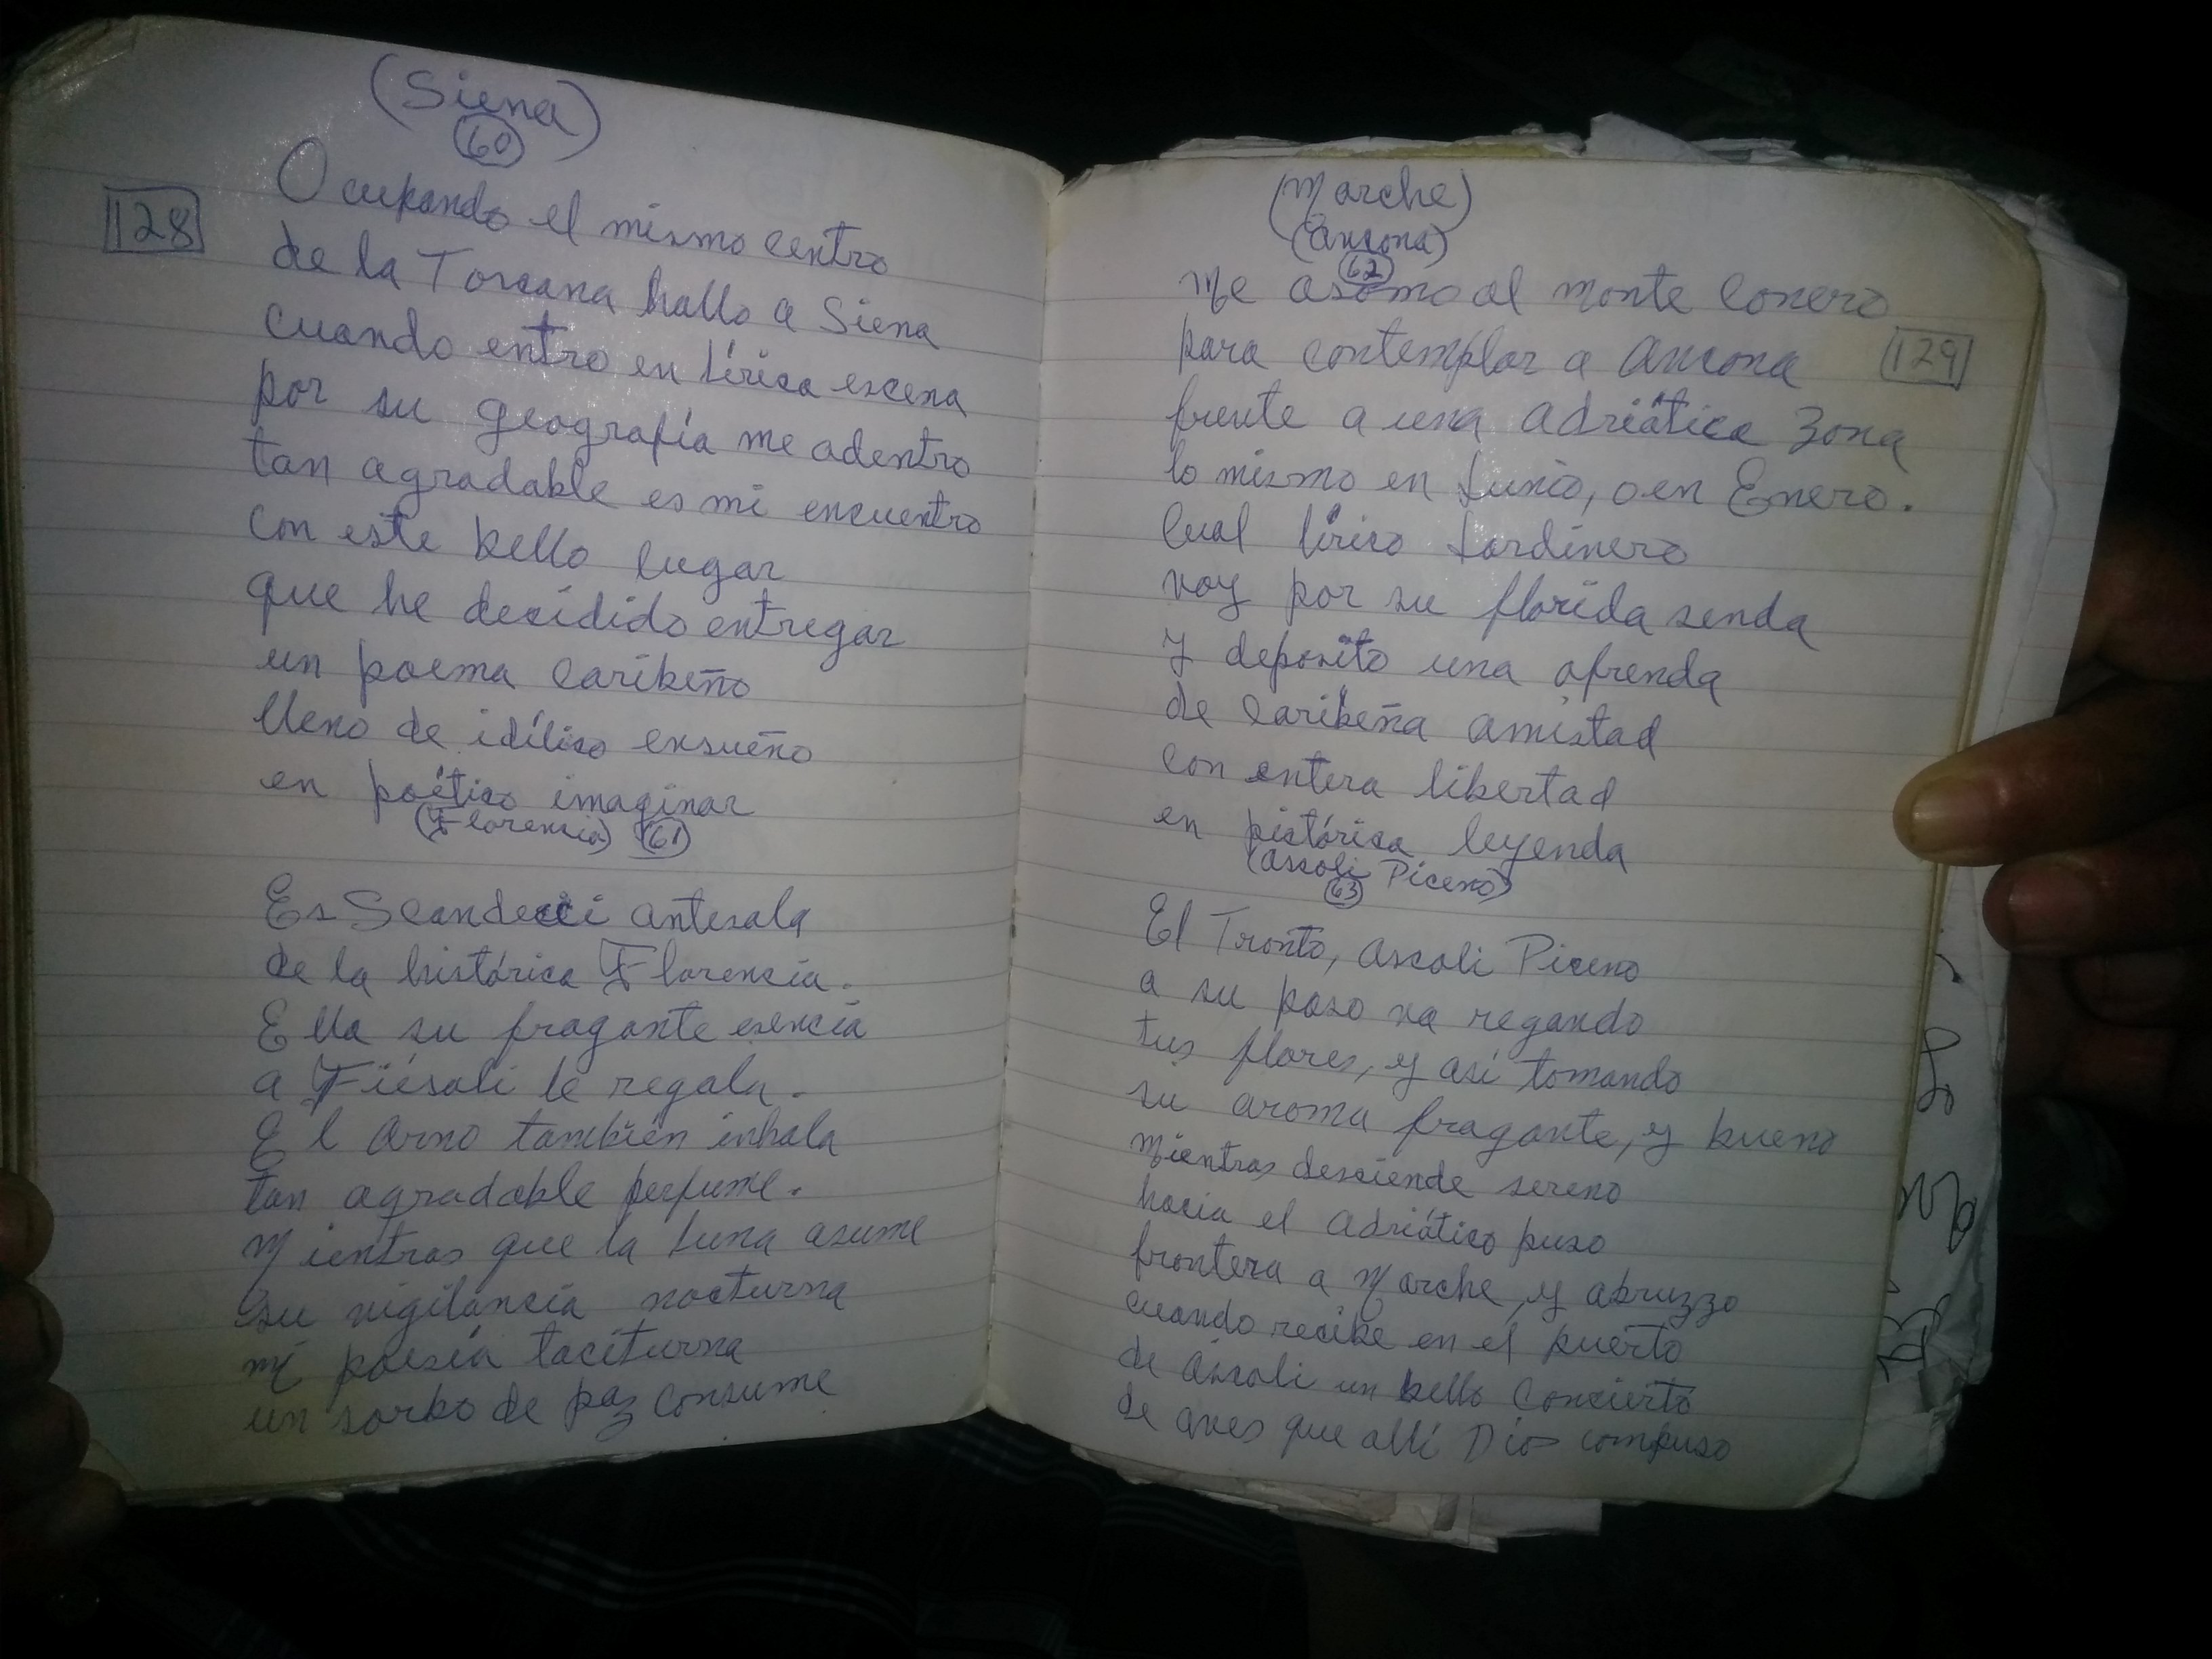 (Siena)
60
128
Ocupando el mismo centro
de la Toscana hallo a Siena
cuando entro en lírica escena
por su geografía me adentro
tan agradable es mi encuentro
con este bello lugar
que he decidido entregar
un poema caribeño
lleno de idílico ensueño
en poético imaginar
(Florencia) 61
Es Scandicci antesala
de la histórica Florencia.
Ella su fragante esencia
a Fiésoli le regala.
El Arno también inhala
tan agradable perfume.
Mientras que la Luna asume
su vigilancia nocturna
mi poesía taciturna
un sorbo de paz consume
(Marche)
(Ancona)
62
Me asomo al monte Conero
para contemplar a Ancona
129
frente a una Adriática zona
lo mismo en Junio, o en Enero.
Cual lírico Jardinero
voy por su florida senda
y deposito una ofrenda
de Caribeña amistad
con entera libertad
en pictórica leyenda
(Ascoli Piceno)
63
El Tronto, Ascoli Piceno
a su paso va regando
tus flores, y así tomando
su aroma fragante, y bueno
mientras desciende sereno
hacia el Adriático puso
frontera a Marche, y Abruzzo
cuando recibe en el puerto
de Áscoli un bello Concierto
de aves que allí Dios compuso